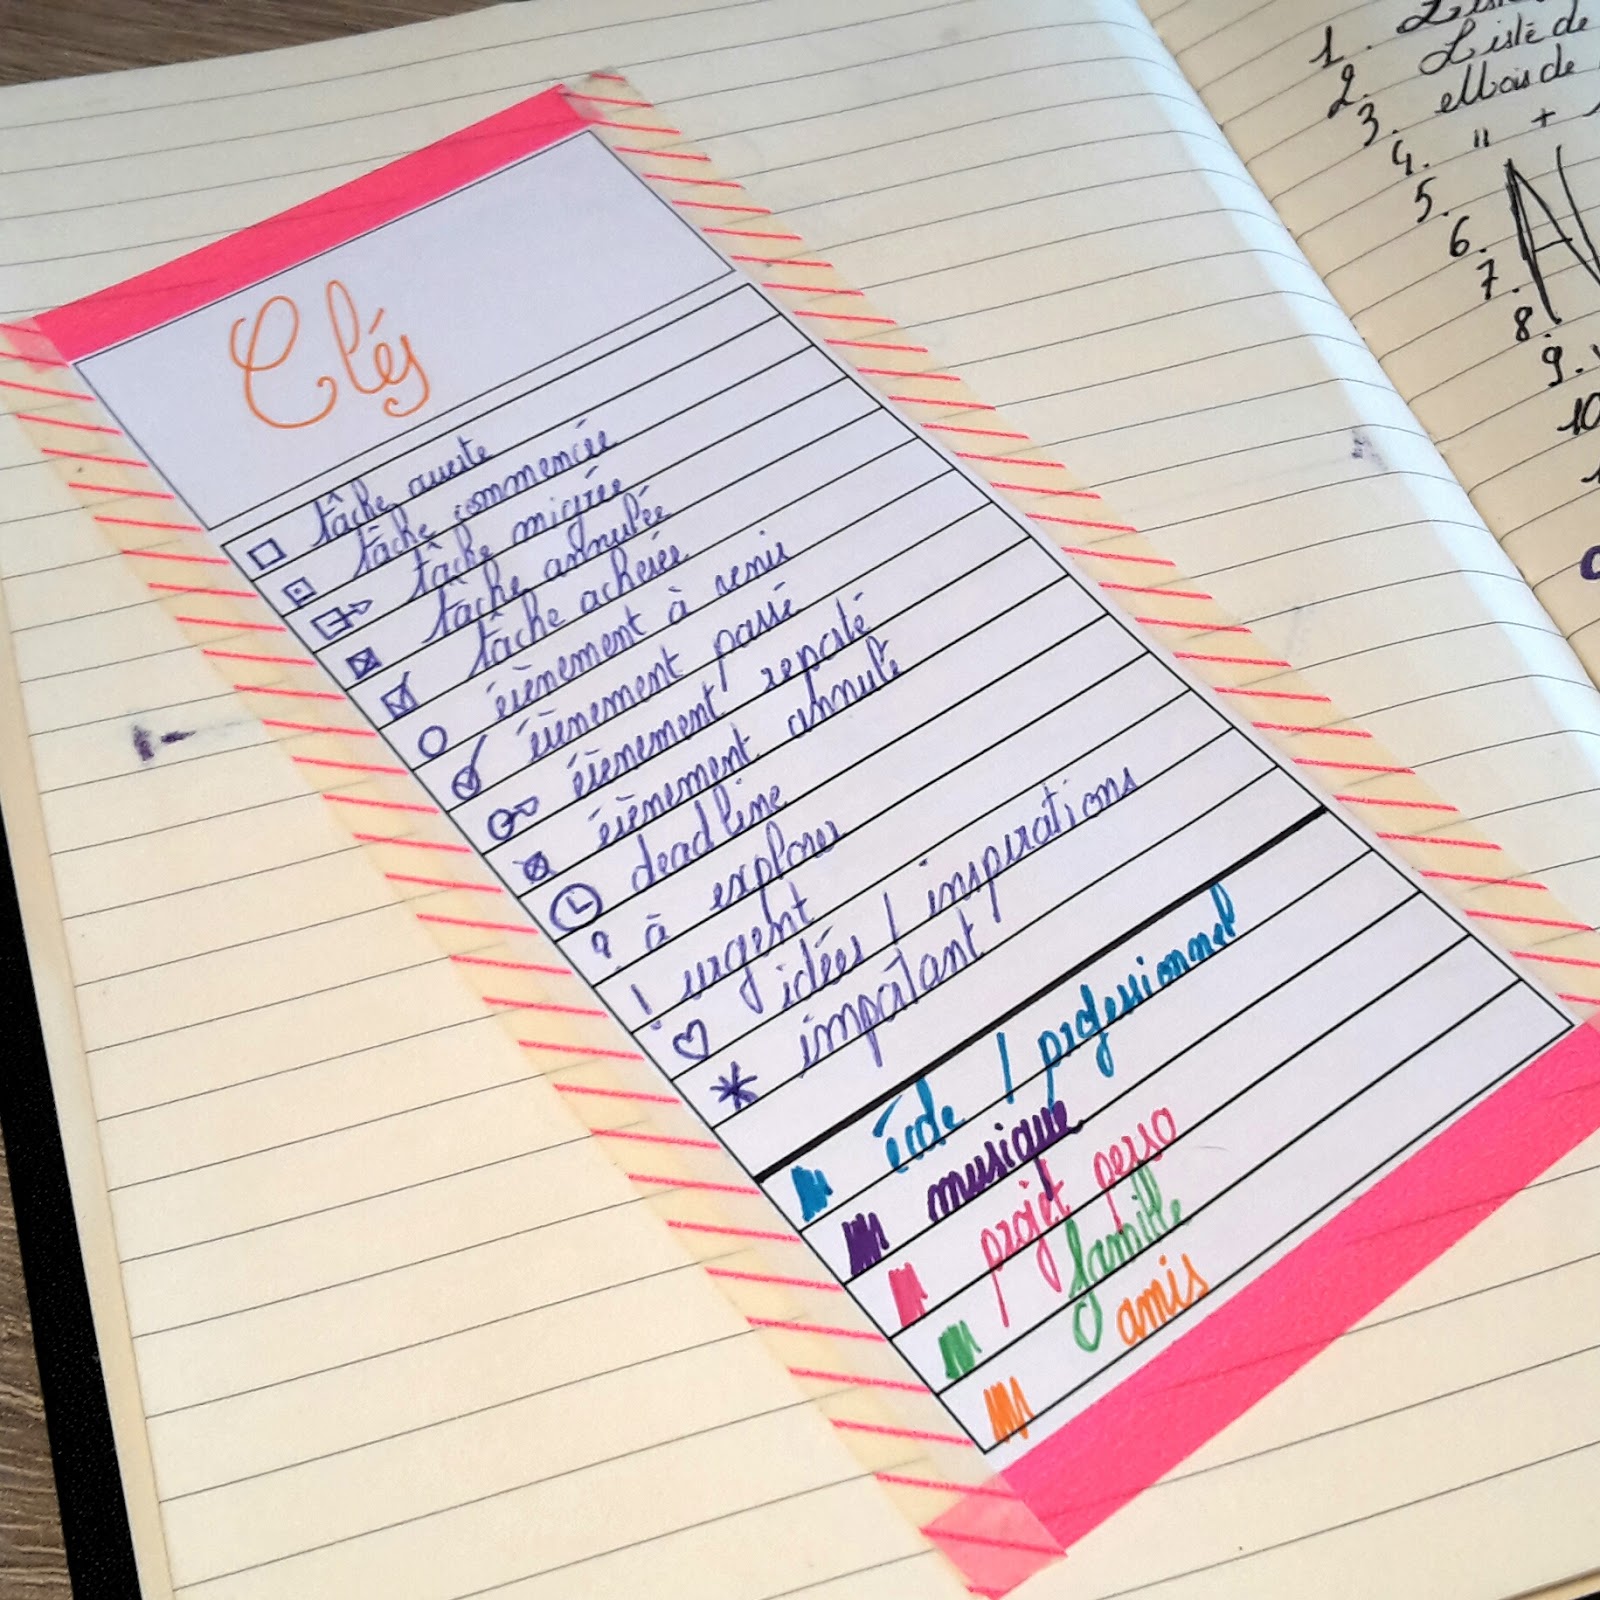 Clés
tâche ouverte
tâche commencée
tâche migrée
tâche annulée
tâche achevée
évènement à venir
évènement passé
évènement reporté
évènement annulé
deadline
? à explorer
! urgent
♡ idées / inspirations
* important
école / professionnel
musique
projet perso
famille
amis
1.
2. Liste de
3. Mois de
4. " +
5.
6.
7.
8.
9.
10